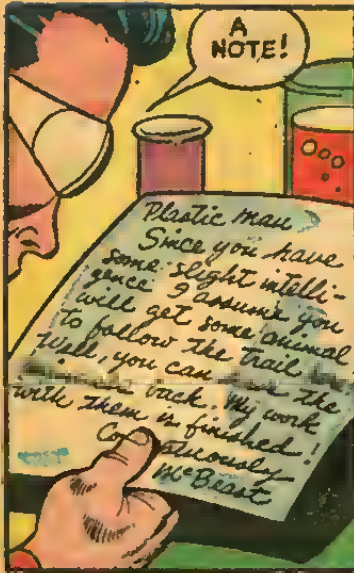 A
NOTE!
Plastic Man
Since you have
some slight intelli-
gence I assume you
will get some animal
to follow the trail
Well, you can the
back. My work
with them is finished!
McBeast